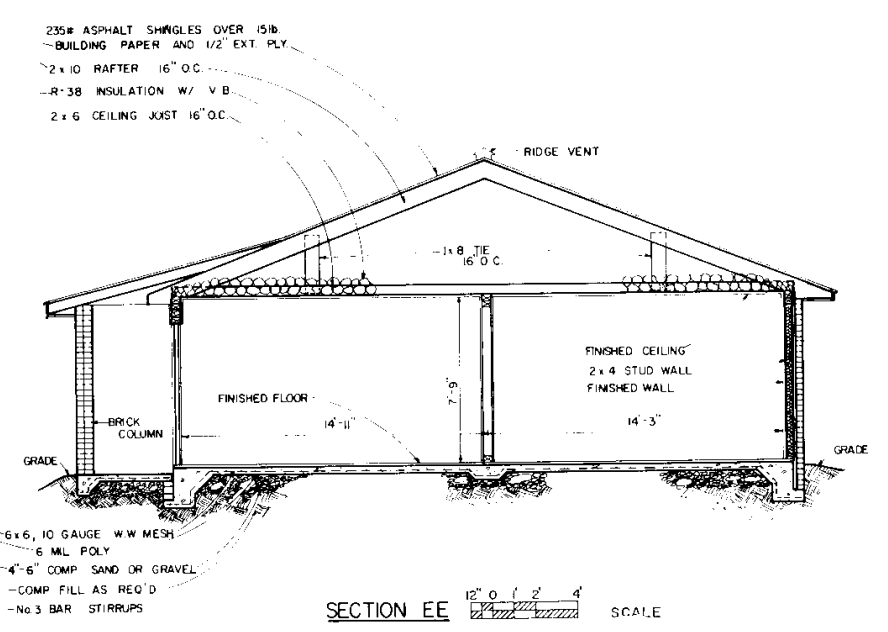 235# ASPHALT SHINGLES OVER 15lb.
BUILDING PAPER AND 1/2" EXT. PLY.
2 x 10 RAFTER 16" O.C.
R-38 INSULATION W/ V.B.
2 x 6 CEILING JOIST 16" O.C.
RIDGE VENT
1x 8 TIE
16" O.C.
FINISHED CEILING
2 x 4 STUD WALL
FINISHED WALL
7'-9"
FINISHED FLOOR
14'-11"
14'-3"
BRICK
COLUMN
GRADE
GRADE
6 x 6, 10 GAUGE W.W MESH
6 MIL POLY
4"-6" COMP SAND OR GRAVEL
COMP FILL AS REQ'D
No.3 BAR STIRRUPS
12" 0 1' 2' 4'
SECTION EE SCALE